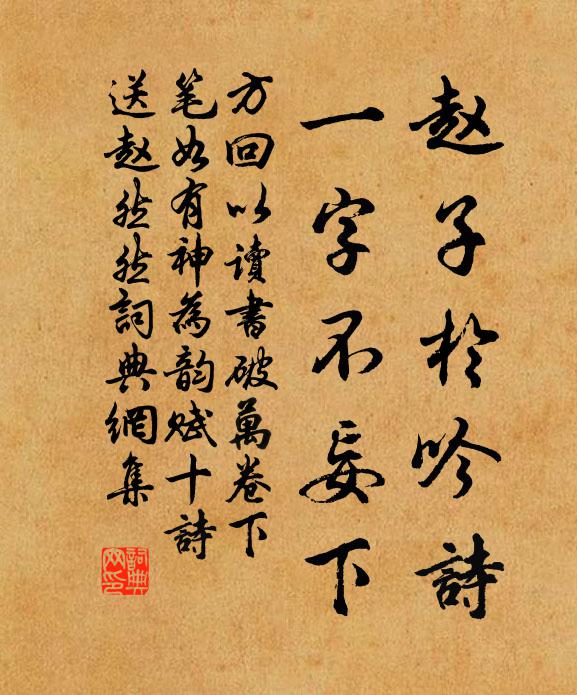 赵子於吟詩
一字不妄下
方回以讀書破萬卷下
笔如有神為韵赋十詩
送赵然然詞典網集
詞典网印